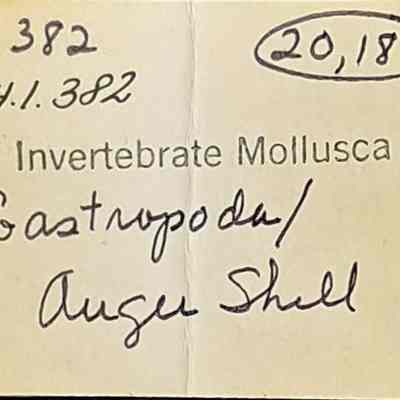 382 20,18
4.1.382
Invertebrate Mollusca
Gastropoda/
Auger Shell